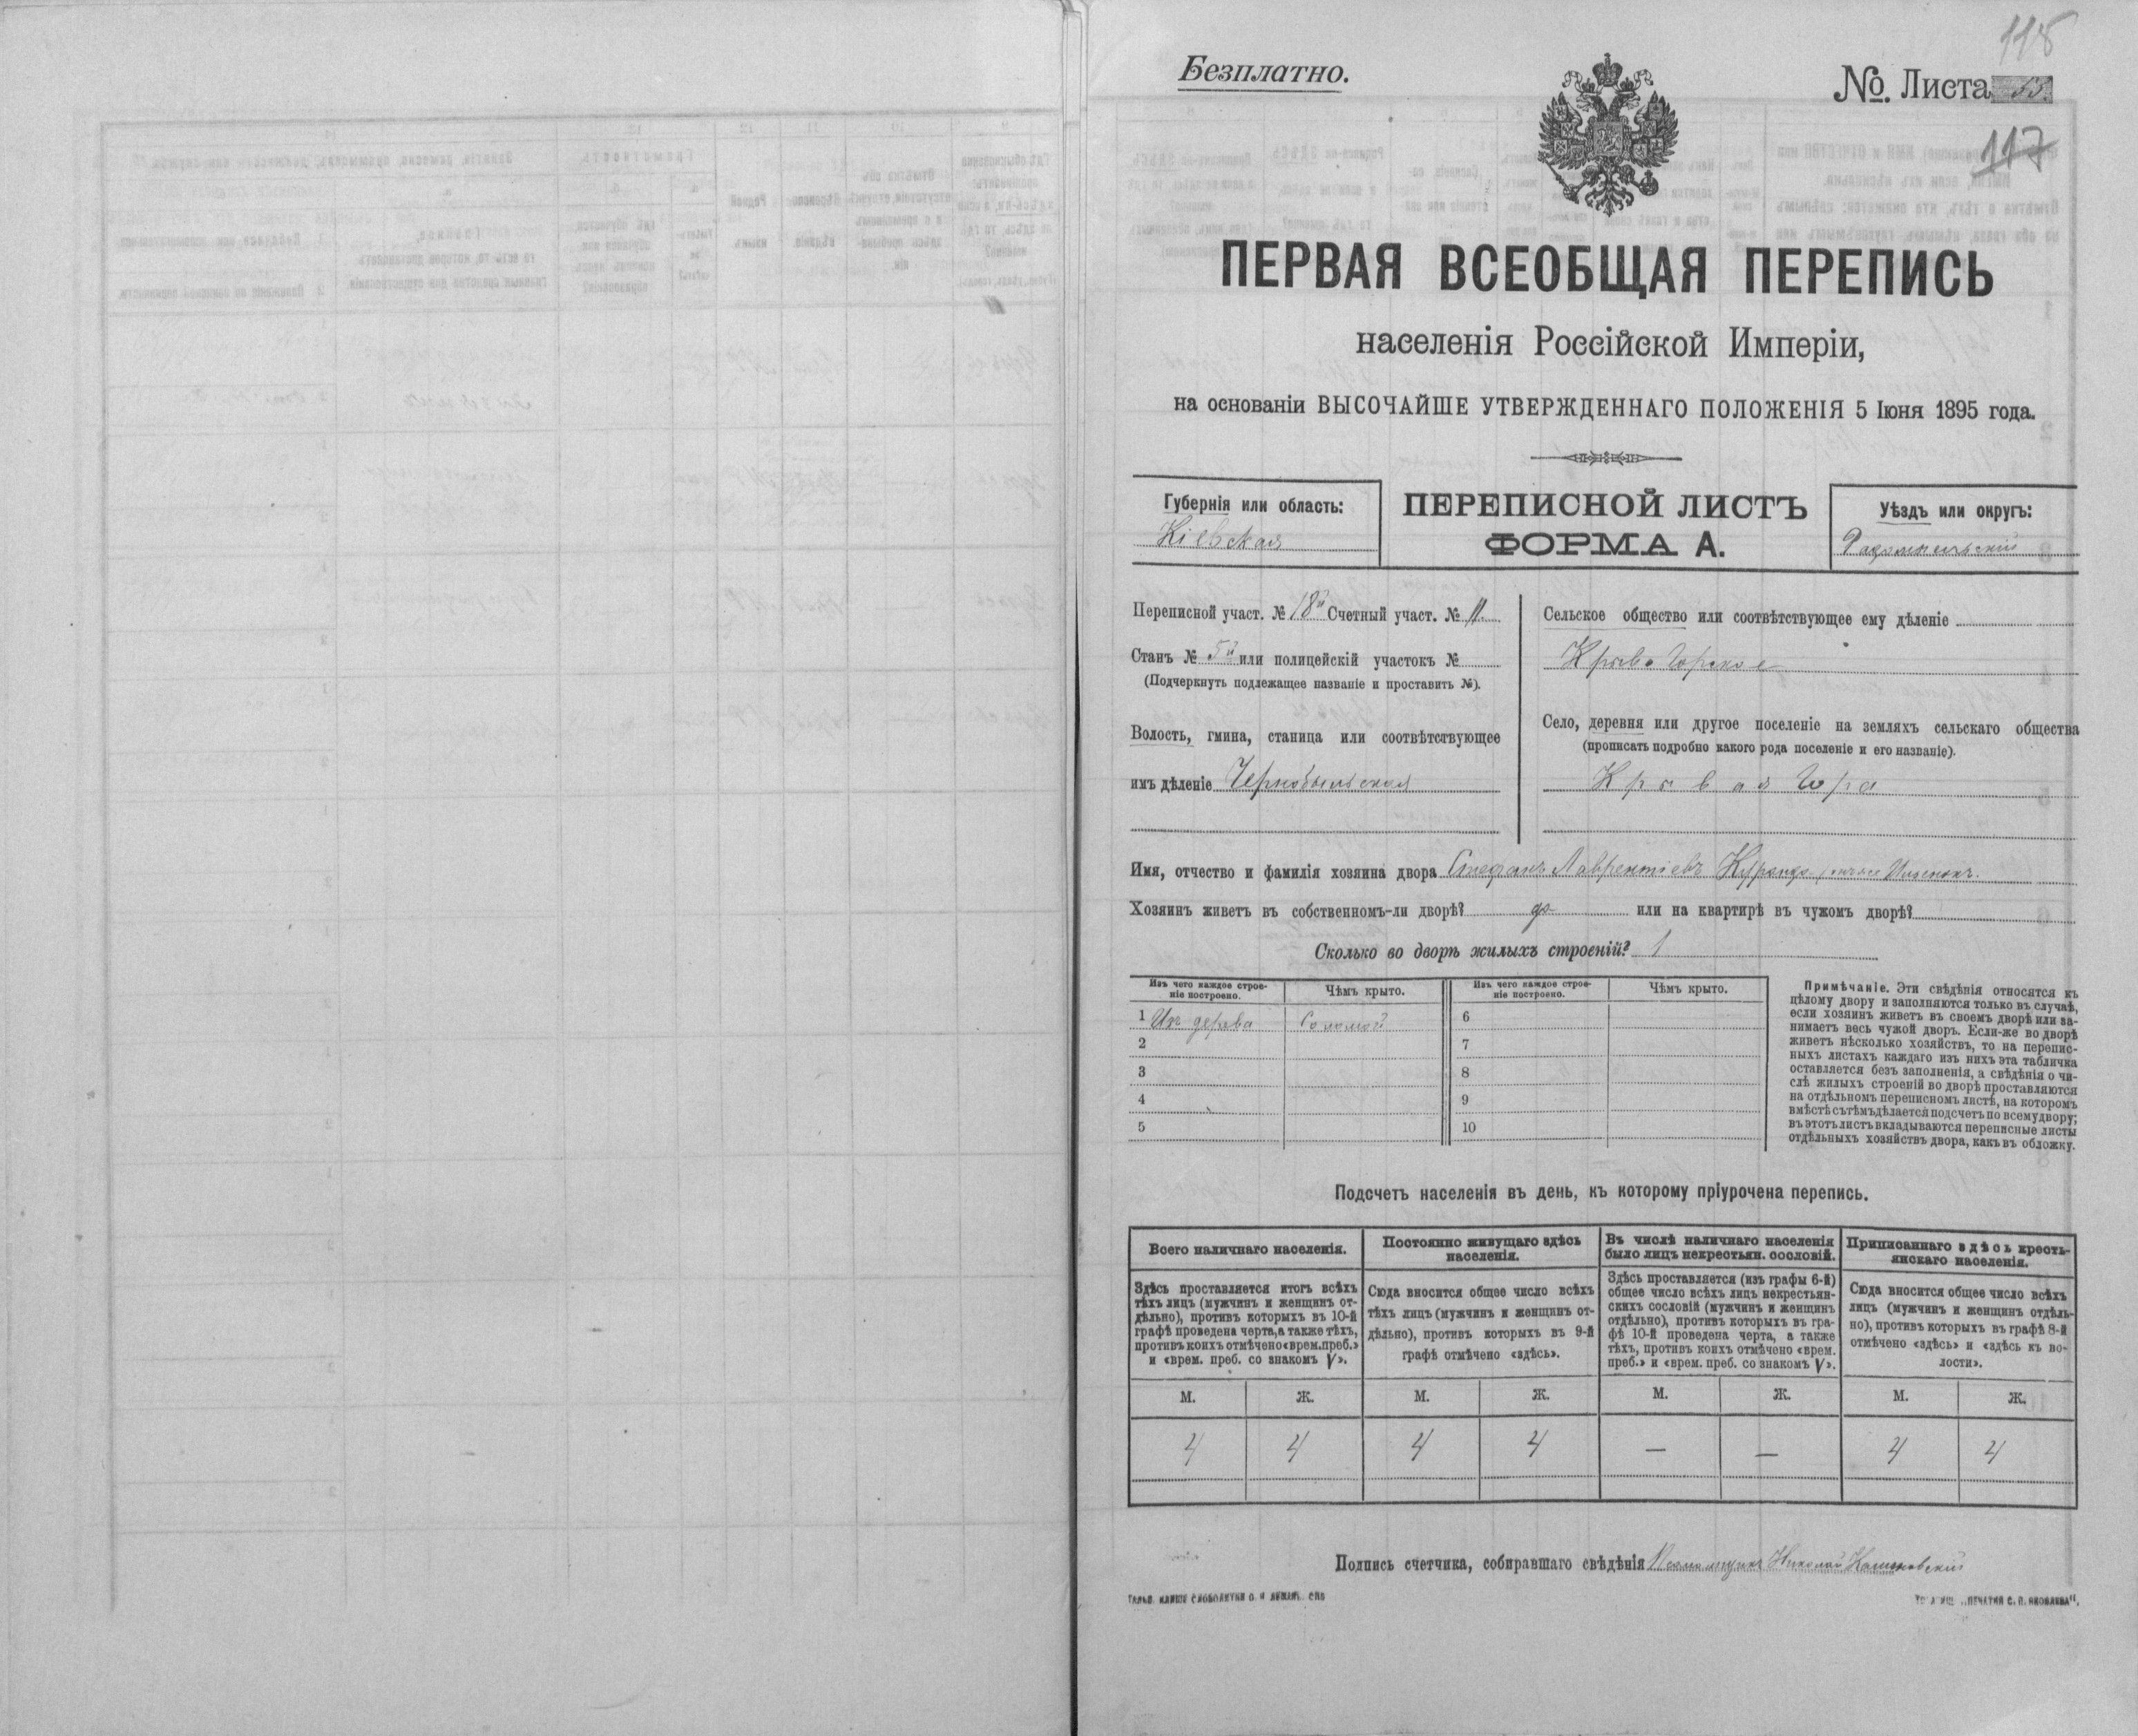 118
Безплатно.
№. Листа 53.
117
ПЕРВАЯ ВСЕОБЩАЯ ПЕРЕПИСЬ
населенія Россійской Имперіи,
на основаніи ВЫСОЧАЙШЕ УТВЕРЖДЕННАГО ПОЛОЖЕНІЯ 5 Іюня 1895 года.
Губернія или область:
Кіевская
ПЕРЕПИСНОЙ ЛИСТЪ
ФОРМА А.
Уѣздъ или округъ:
Радомысльскій
Переписной участ. № 18й Счетный участ. № 11.
Станъ № 5й или полицейскій участокъ №
(Подчеркнуть подлежащее названіе и проставить №).
Волость, гмина, станица или соотвѣтствующее
имъ дѣленіе Чернобыльская
Сельское общество или соотвѣтствующее ему дѣленіе
Крывогорское
Село, деревня или другое поселеніе на земляхъ сельскаго общества
(прописать подробно какого рода поселеніе и его названіе).
Кривая Гора
Имя, отчество и фамилія хозяина двора Стефанъ Лаврентіевъ
Хозяинъ живетъ въ собственномъ-ли дворѣ? да или на квартирѣ въ чужомъ дворѣ?
Сколько во дворѣ жилыхъ строеній? 1
Изъ чего каждое строе-
ніе построено.
Чѣмъ крыто.
Изъ чего каждое строе-
ніе построено.
Чѣмъ крыто.
1 Изъ дерева Соломой
2
3
4
5
6
7
8
9
10
Примѣчаніе. Эти свѣдѣнія относятся къ
цѣлому двору и заполняются только въ случаѣ,
если хозяинъ живетъ въ своемъ дворѣ или за-
нимаетъ весь чужой дворъ. Если-же во дворѣ
живетъ нѣсколько хозяйствъ, то на перепис-
ныхъ листахъ каждаго изъ нихъ эта табличка
оставляется безъ заполненія, а свѣдѣнія о чи-
слѣ жилыхъ строеній во дворѣ проставляются
на отдѣльномъ переписномъ листѣ, на которомъ
вмѣстѣ съ тѣмъ дѣлается подсчетъ по всему двору;
въ этотъ листъ вкладываются переписные листы
отдѣльныхъ хозяйствъ двора, какъ въ обложку.
Подсчетъ населенія въ день, къ которому пріурочена перепись.
Всего наличнаго населенія.
Постоянно живущаго здѣсь
населенія.
Въ числѣ наличнаго населенія
было лицъ некрестьян. сословій.
Приписаннаго здѣсь кресть-
янскаго населенія.
Здѣсь проставляется итогъ всѣхъ
тѣхъ лицъ (мужчинъ и женщинъ от-
дѣльно), противъ которыхъ въ 10-й
графѣ проведена черта, а также тѣхъ,
противъ коихъ отмѣчено «врем. преб.»
и «врем. преб. со знакомъ V».
Сюда вносится общее число всѣхъ
тѣхъ лицъ (мужчинъ и женщинъ от-
дѣльно), противъ которыхъ въ 9-й
графѣ отмѣчено «здѣсь».
Здѣсь проставляется (изъ графы 6-й)
общее число всѣхъ лицъ некрестьян-
скихъ сословій (мужчинъ и женщинъ
отдѣльно), противъ которыхъ въ гра-
фѣ 10-й проведена черта, а также
тѣхъ, противъ коихъ отмѣчено «врем.
преб.» и «врем. преб. со знакомъ V».
Сюда вносится общее число всѣхъ
лицъ (мужчинъ и женщинъ отдѣль-
но), противъ которыхъ въ графѣ 8-й
отмѣчено «здѣсь» и «здѣсь къ во-
лости».
М. Ж. М. Ж. М. Ж. М. Ж.
4 4 4 4 — — 4 4
Подпись счетчика, собиравшаго свѣдѣнія Псаломщикъ Николай